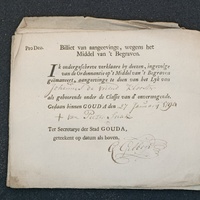 PRO DEO.
Billiet van aangeevinge, wegens het
Middel van 't Begraven.
IK ondergeschreve verklaare by deezen, ingevolge
van de Ordonnantie op 't Middel van 't Begraven
geëmaneert, aangeevinge te doen van het Lyk van
Johannes de
als gehoorende onder de Classe van d' onvermogende.
Gedaan binnen GOUDA den 27 January 179
Ter Secretarye der Stad GOUDA,
getekent op datum als boven.